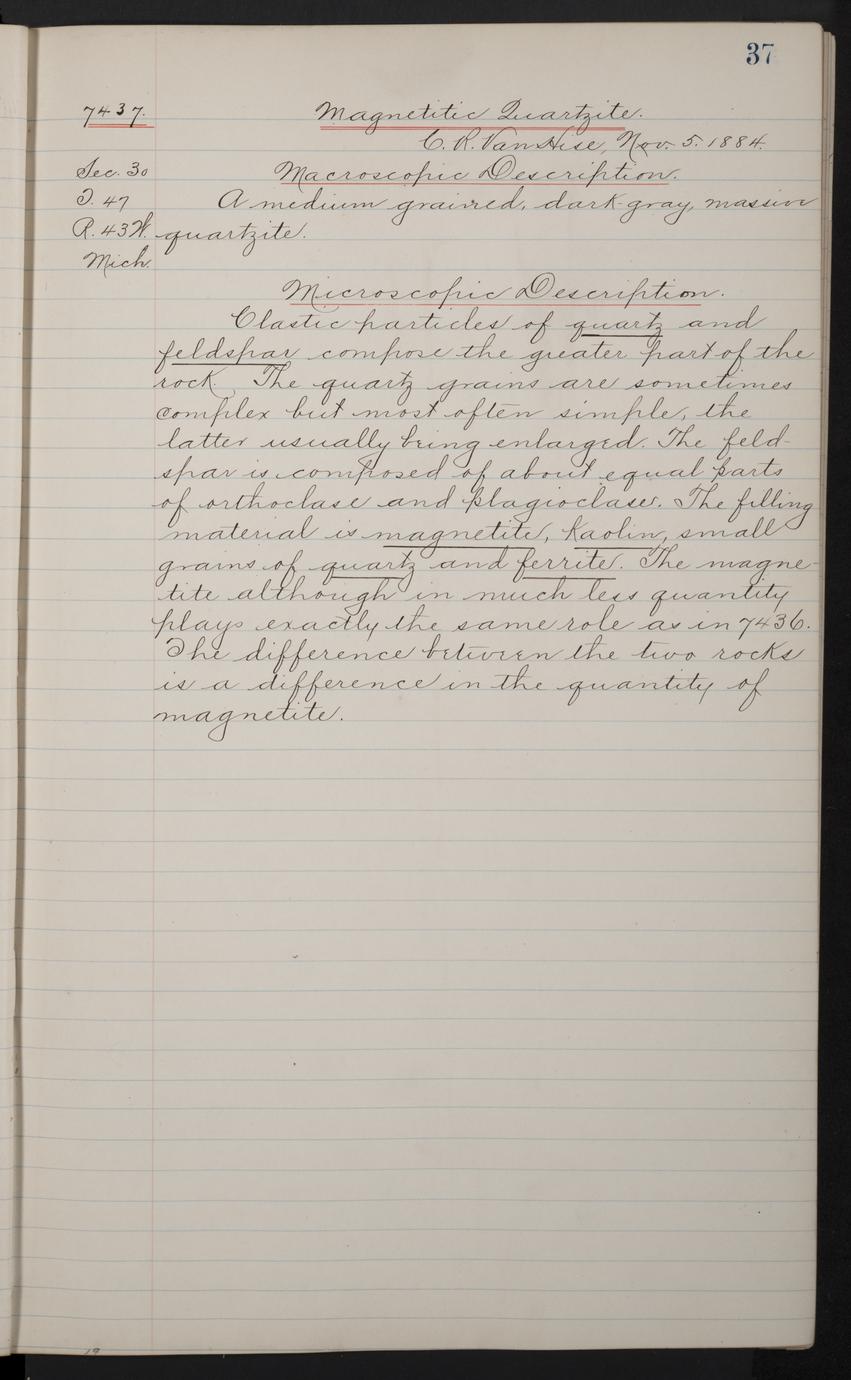 37
7437. Magnetitic Quartzite.
C. R. Van Hise, Nov. 5. 1884.
Sec. 30 Macroscopic Description.
T. 47 A medium grained, dark-gray, massive
R. 43 W. quartzite.
Mich.
Microscopic Description.
Clastic particles of quartz and
feldspar compose the greater part of the
rock. The quartz grains are sometimes
complex but most often simple, the
latter usually being enlarged. The feld-
spar is composed of about equal parts
of orthoclase and plagioclase. The filling
material is magnetite, kaolin, small
grains of quartz and ferrite. The magne-
tite although in much less quantity
plays exactly the same role as in 7436.
The difference between the two rocks
is a difference in the quantity of
magnetite.